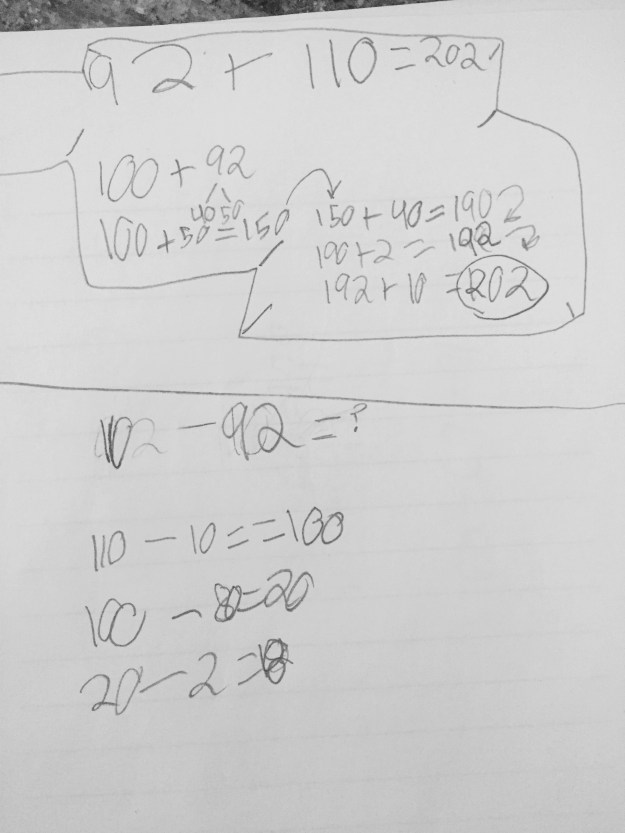 92 + 110 = 202
100 + 92
40 50
100 + 50 = 150
150 + 40 = 190
190 + 2 = 192
192 + 10 = 202
- 92 = ?
110 - 10 = = 100
100 - 80 = 20
20 - 2 = 18